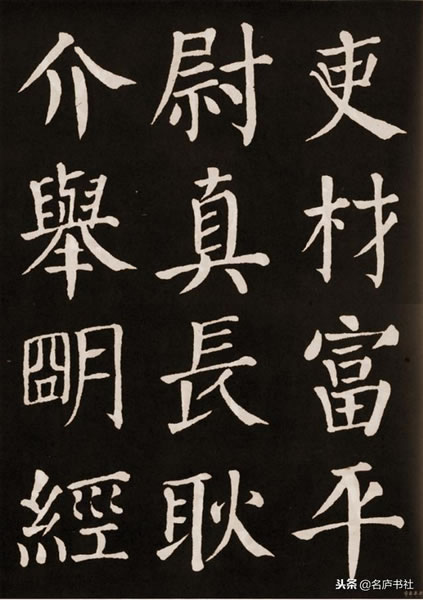 吏材富平
尉真長耿
介舉朙經
头条@名庐书社